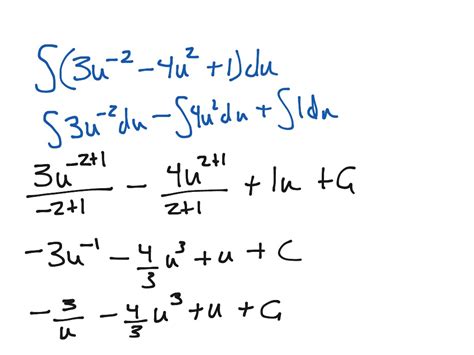 ∫(3u⁻² − 4u² + 1)du
∫3u⁻²du − ∫4u²du + ∫1du
3u⁻²⁺¹/−2+1 − 4u²⁺¹/2+1 + 1u + C
−3u⁻¹ − 4/3 u³ + u + C
−3/u − 4/3 u³ + u + C